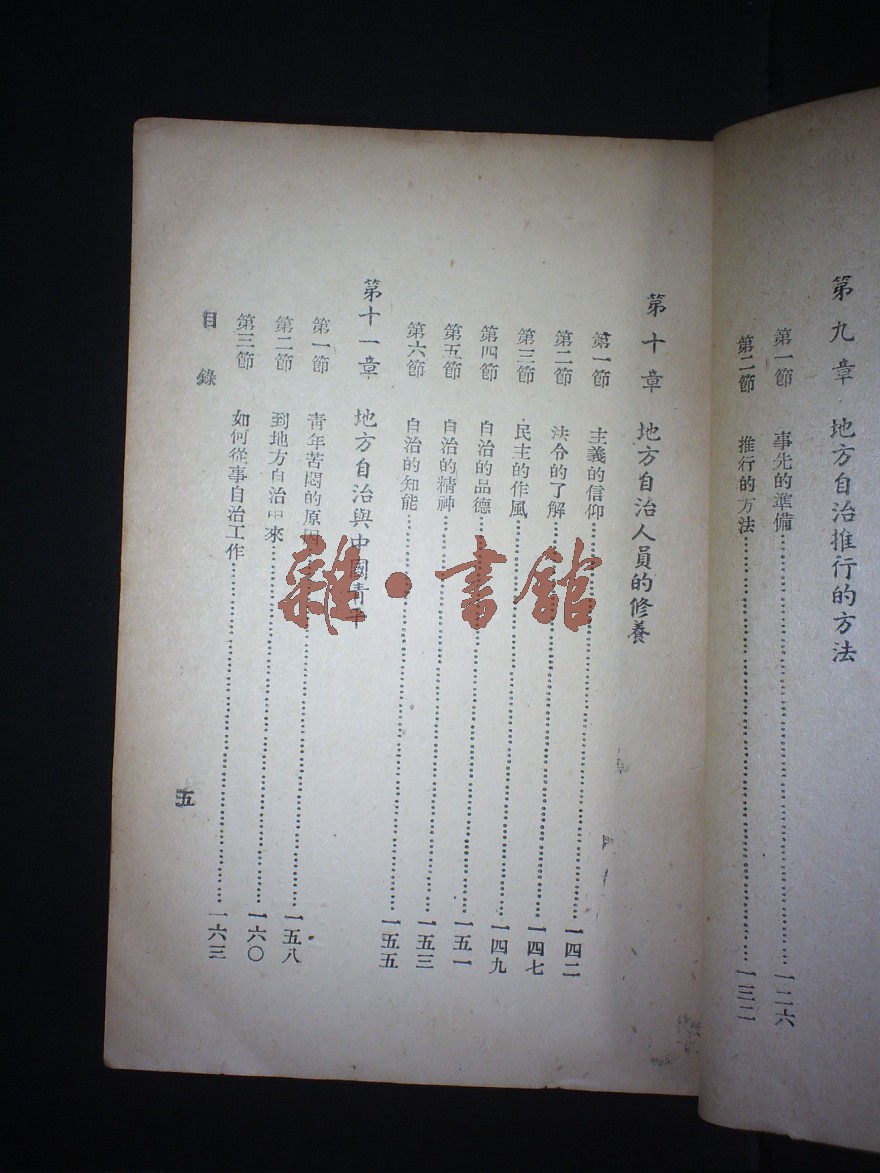 第九章 地方自治推行的方法
第一節 事先的準備……一二六
第二節 推行的方法……一三二
第十章 地方自治人員的修養
第一節 主義的信仰……一四二
第二節 法令的了解……一四七
第三節 民主的作風……一四九
第四節 自治的品德……一五一
第五節 自治的精神……一五三
第六節 自治的知能……一五五
第十一章 地方自治與中國青年
第一節 青年苦悶的原因……一五八
第二節 到地方自治中來……一六〇
第三節 如何從事自治工作……一六三
目錄
五
雜·書館